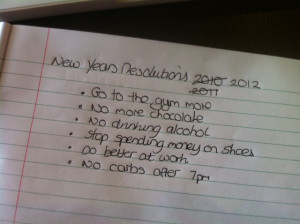 New Years Resolutions 2010 2012
2011
• Go to the gym more
• No more chocolate
• No drinking alcohol
• stop spending money on shoes
• Do better at work
• No carbs after 7pm